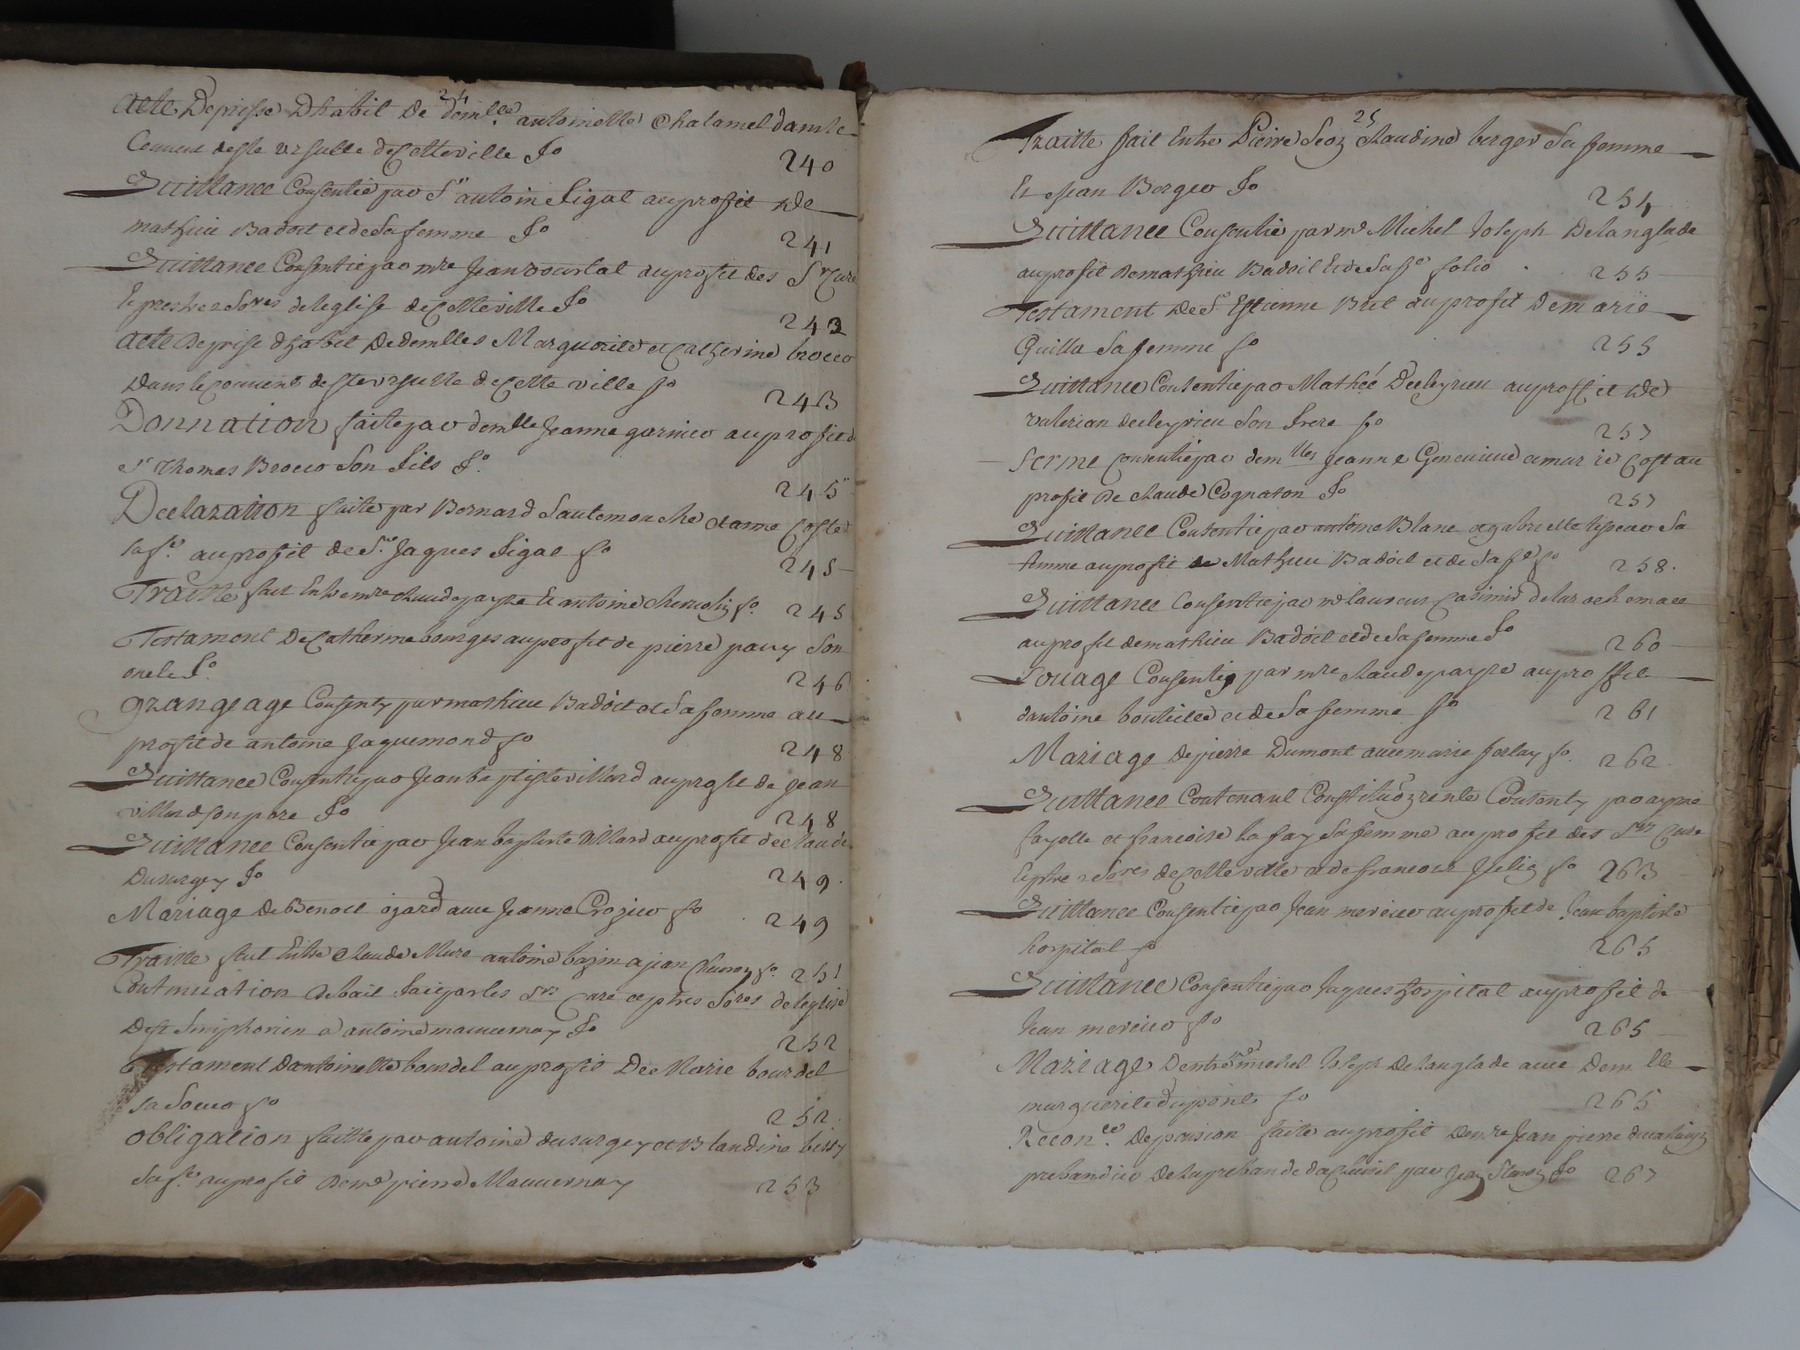 24
Acte Deprisse Dhabit De demlle antoinette Chalamel dansle
Couuent deste ursulle deCetteville fo 240
Quittance Consentie par Sr antoine Sigal auprofit de
mathieu Badoit et de Sa femme fo 241
Quittance Consentie par mre Jean courtal auprofit des Srs Curé
Et prestres Sores deleglise deCetteville fo 242
Acte De prise dhabit De demlles Marguerite et Catherine brocco
Dans le couuent de ste Ursulle de Cette ville fo 243
Donnation faite par demlle Jeanne garnier auprofit de
sr thomas Brocco Son fils fo 245
Declaration faite par Bernard Sautemouche et anne Coste
sa fe au profit de Sr Jaques Sigal fo 245
Traitte fait Entre mre Claude payre Et antoine fo 245
Testament De Catherine bourges auprofit de pierre pauy Son
oncle fo 246
Grangeage Consenty par mathieu Badoit et Sa femme au
profit de antoine Jaquemond fo 248
Quittance Consentie par Jean baptiste villard auprofit de Jean
villard Son pere fo 248
Quittance Consentie par Jean baptiste villard auprofit de Claude
Dusurgey fo 249
Mariage de Benoit ojard auec Jeanne Crozier fo 249
Traitte fait Entre Claude Mure antoine bazin a jean fo 251
Continuation de bail faite par les Srs Curé et pbres Sores deleglise
De st Simphorien a antoine mauuernay fo 252
Testament dantoinette bourdel auprofit De Marie bourdel
sa Soeur fo 252
Obligation faitte par antoine dusurgey et Blandine bissy
Sa fe auprofit De mre pierre Mauuernay 253
25
Traitte fait Entre Pierre Claudine berger Sa femme
Et Jean Berger fo 254
Quittance Consentie par mr Michel Joseph Delanglade
auprofit De mathieu Badoit Et de Sa fe folio 255
Testament De Sr Estienne Bret au profit De marie
Quilla Sa femme fo 255
Quittance Consentie par Mathé Decleyrieu auproffit de
valerian decleyrieu Son frere fo 257
Ferme consentie par demlles Jeanne Geneuieue et marie Cost au
profit De Claude Cognaton fo 257
Quittance Consentie par antoine Blanc et gabrielle Sa
femme auprofit de Mathieu Badoit et de Sa fe fo 258
Quittance Consentie par mr laurens Casimir delarochemace
auprofit demathieu Badoit et de Sa femme fo 260
Louage Consentie par mre Claude payre auproffit
dantoine bouteille et de Sa femme fo 261
Mariage de pierre Dumont auec marie ferlay fo 262
Quittance Contenant Constituõn rente Consenty par ayme
fayolle et francoise la fay Sa femme auprofit des Srs Curé
Et pbres Sores de Cette ville et de francois fo 263
Quittance Consentie par Jean mercier auprofit de Jean baptiste
hospital fo 265
Quittance Consentie par Jaques hospital auprofit de
Jean mercier fo 265
Mariage Dentre mr michel Joseph Delanglade auec Demlle
marguerite dupont fo 265
Reconce De pension faite auprofit De mre Jean pierre
prebandier De la prebande par Jean fo 267